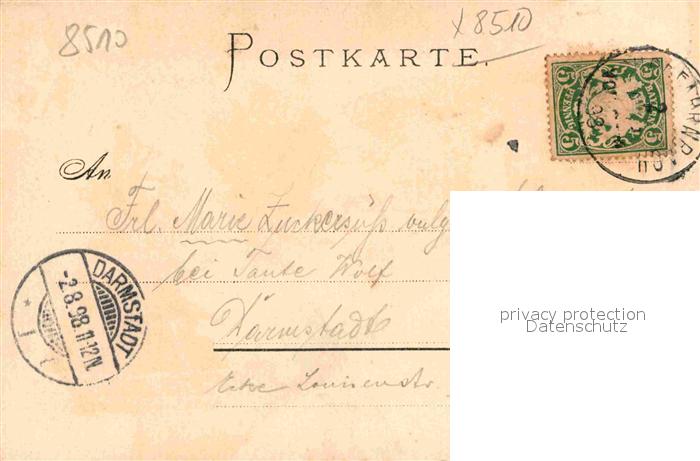 8510
x 8510
POSTKARTE.
5 BAYERN 5
5 PFENNIG 5
An
Frl. Marie Zuckersüß vulg
bei Tante Wolf
Darmstadt
Ecke Louisenstr.
DARMSTADT
-2.8.98.11-12N.
1
privacy protection
Datenschutz